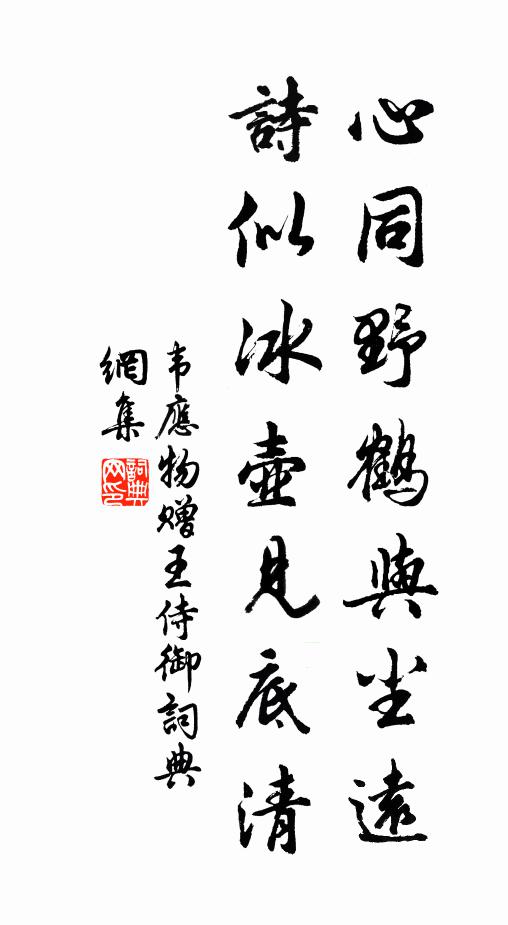 心同野鶴與尘遠
詩似冰壺見底清
韦應物赠王侍御詞典
網集
詞典網印